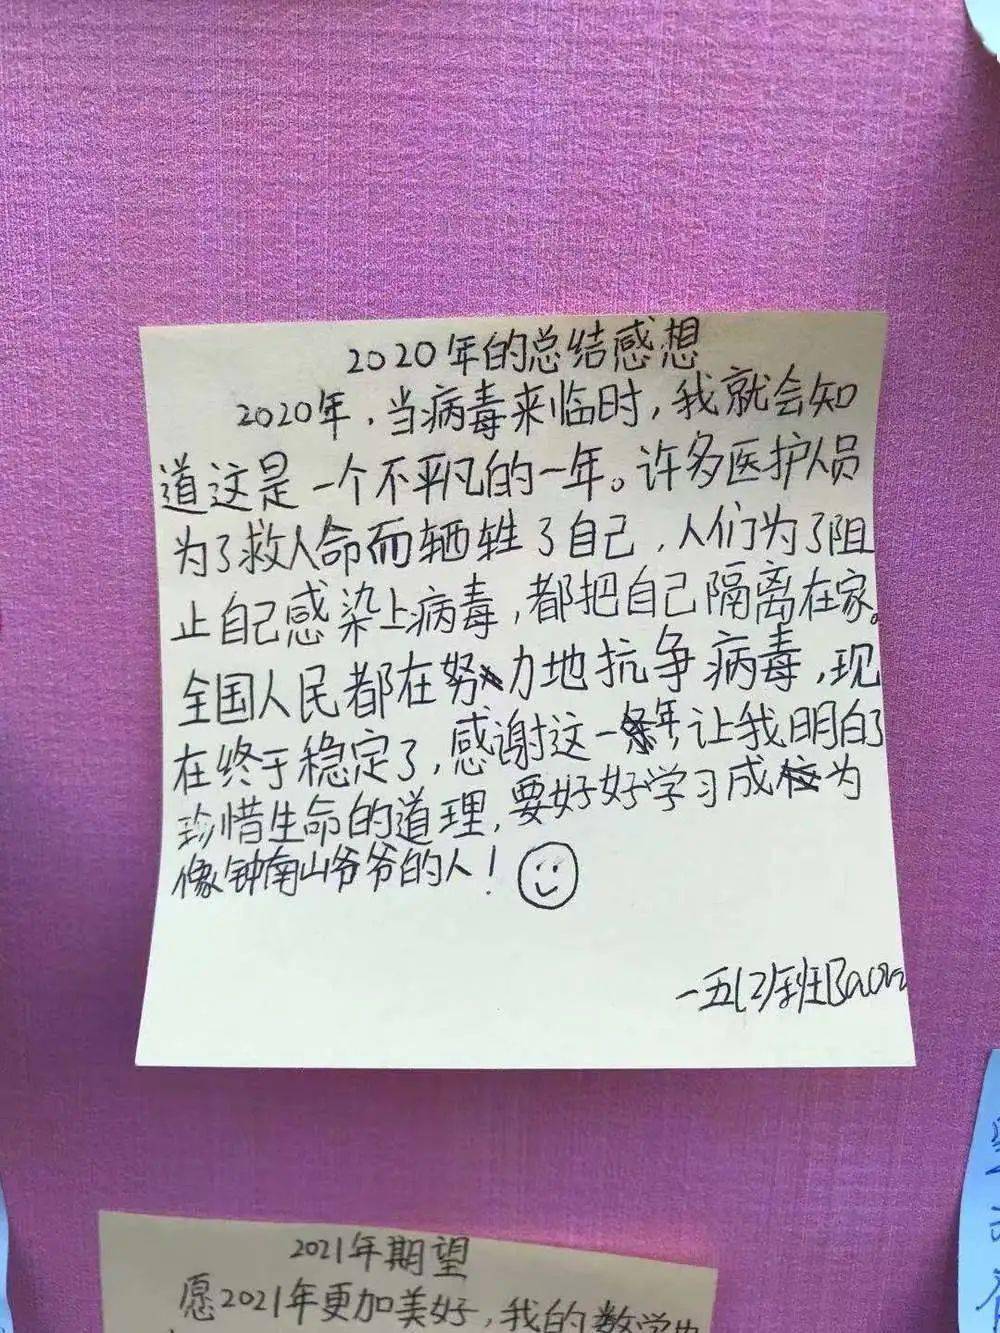 2020年的总结感想
2020年，当病毒来临时，我就会知
道这是一个不平凡的一年。许多医护人员
为了救人命而牺牲了自己，人们为了阻
止自己感染上病毒，都把自己隔离在家。
全国人民都在努力地抗争病毒，现
在终于稳定了，感谢这一年，让我明白了
珍惜生命的道理，要好好学习成为
像钟南山爷爷的人！
一五(2)班
2021年期望
愿2021年更加美好，我的数学